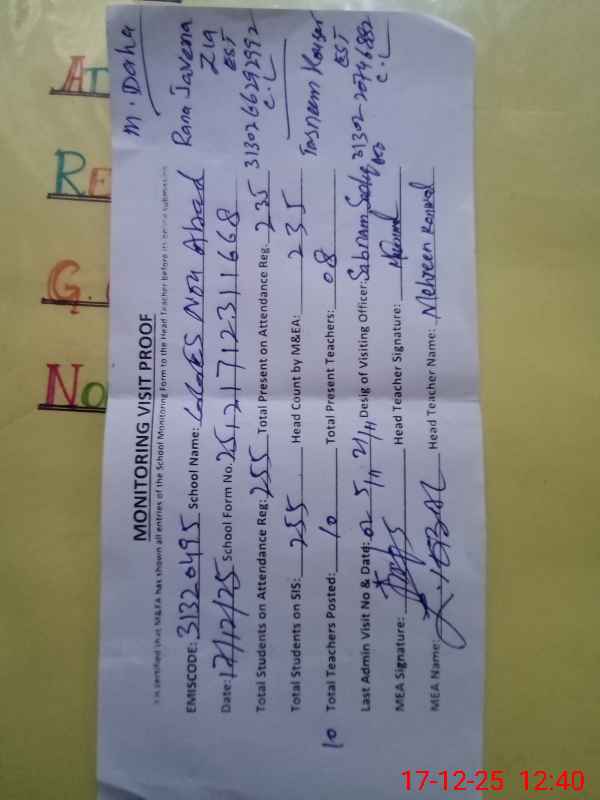 M. Daha
Rana Javeria
Zia
EST
31302 66292992
C.L
Tasneem Kousar
EST
31302-20746882
C.L
MONITORING VISIT PROOF
It is certified that M&EA has shown all entries of the School Monitoring Form to the Head Teacher before its online submission
EMISCODE: 31320495 School Name: Abad
Date: 17/12/25 School Form No. 25121712311668
Total Students on Attendance Reg: 255 Total Present on Attendance Reg: 235
Total Students on SIS: 255 Head Count by M&EA: 235
10 Total Teachers Posted: 10 Total Present Teachers: 08
Last Admin Visit No & Date: 02 5/11, 21/11 Desig of Visiting Officer: Sabnam
MEA Signature: Head Teacher Signature:
MEA Name: Z. IQBAL Head Teacher Name: Mehreen Kanwal
AT
RE
G.
No
17-12-25 12:40